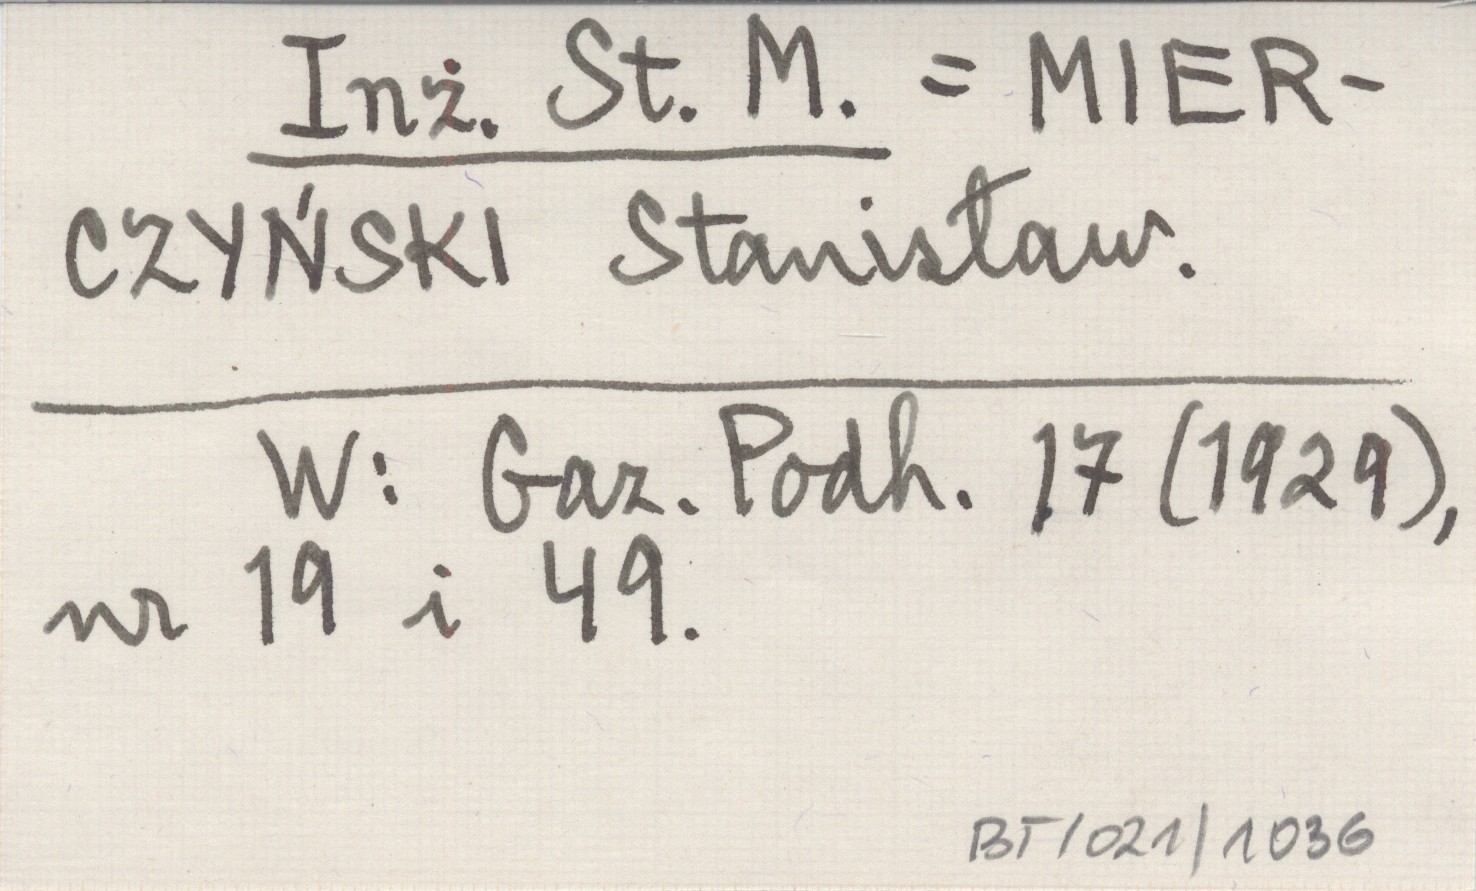 Inż. St. M. = MIER-
CZYŃSKI Stanisław.
W: Gaz. Podh. 17 (1929),
nr 19 i 49.
BT/021/1036